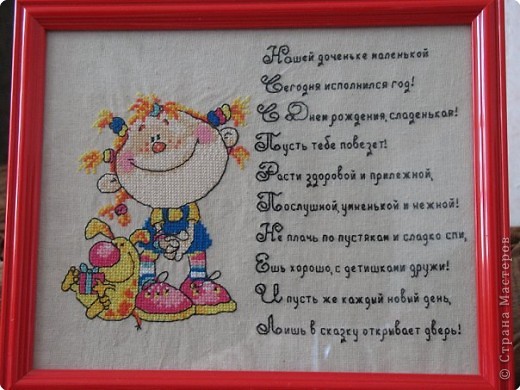 Нашей доченьке маленькой
Сегодня исполнился год!
С Днем рождения, сладенькая!
Пусть тебе повезет!
Расти здоровой и прилежной,
Послушной, умненькой и нежной!
Не плачь по пустякам и сладко спи,
Ешь хорошо, с детишками дружи!
И пусть же каждый новый день,
Лишь в сказку открывает дверь!
© Страна Мастеров